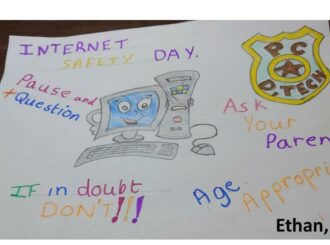 INTERNET
SAFETY DAY.
PC
D.TECH
Pause and
+ Question
Ask
Your
Paren
IF in doubt
DON'T!!!
Age
Appropri
Ethan,